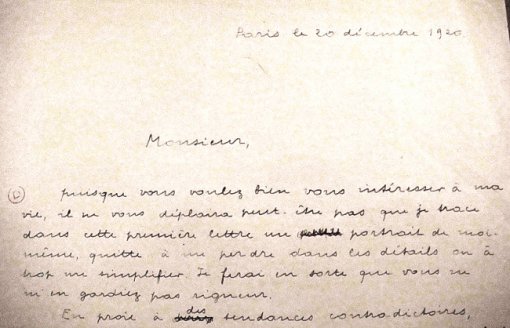 Paris le 20 décembre 1920
Monsieur,
puisque vous voulez bien vous intéresser à ma
vie, il ne vous déplaira peut-être pas que je trace
dans cette première lettre un portrait de moi-
même, quitte à me perdre dans les détails ou à
trop me simplifier. Je ferai en sorte que vous ne
m'en gardiez pas rigueur.
En proie à des tendances contradictoires,